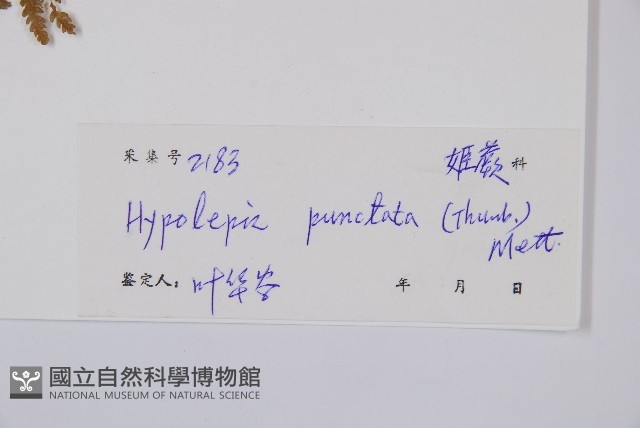 采集号 2183 姬蕨科
Hypolepis punctata (Thunb.)
Mett.
鉴定人：叶华谷 年 月 日
國立自然科學博物館
NATIONAL MUSEUM OF NATURAL SCIENCE